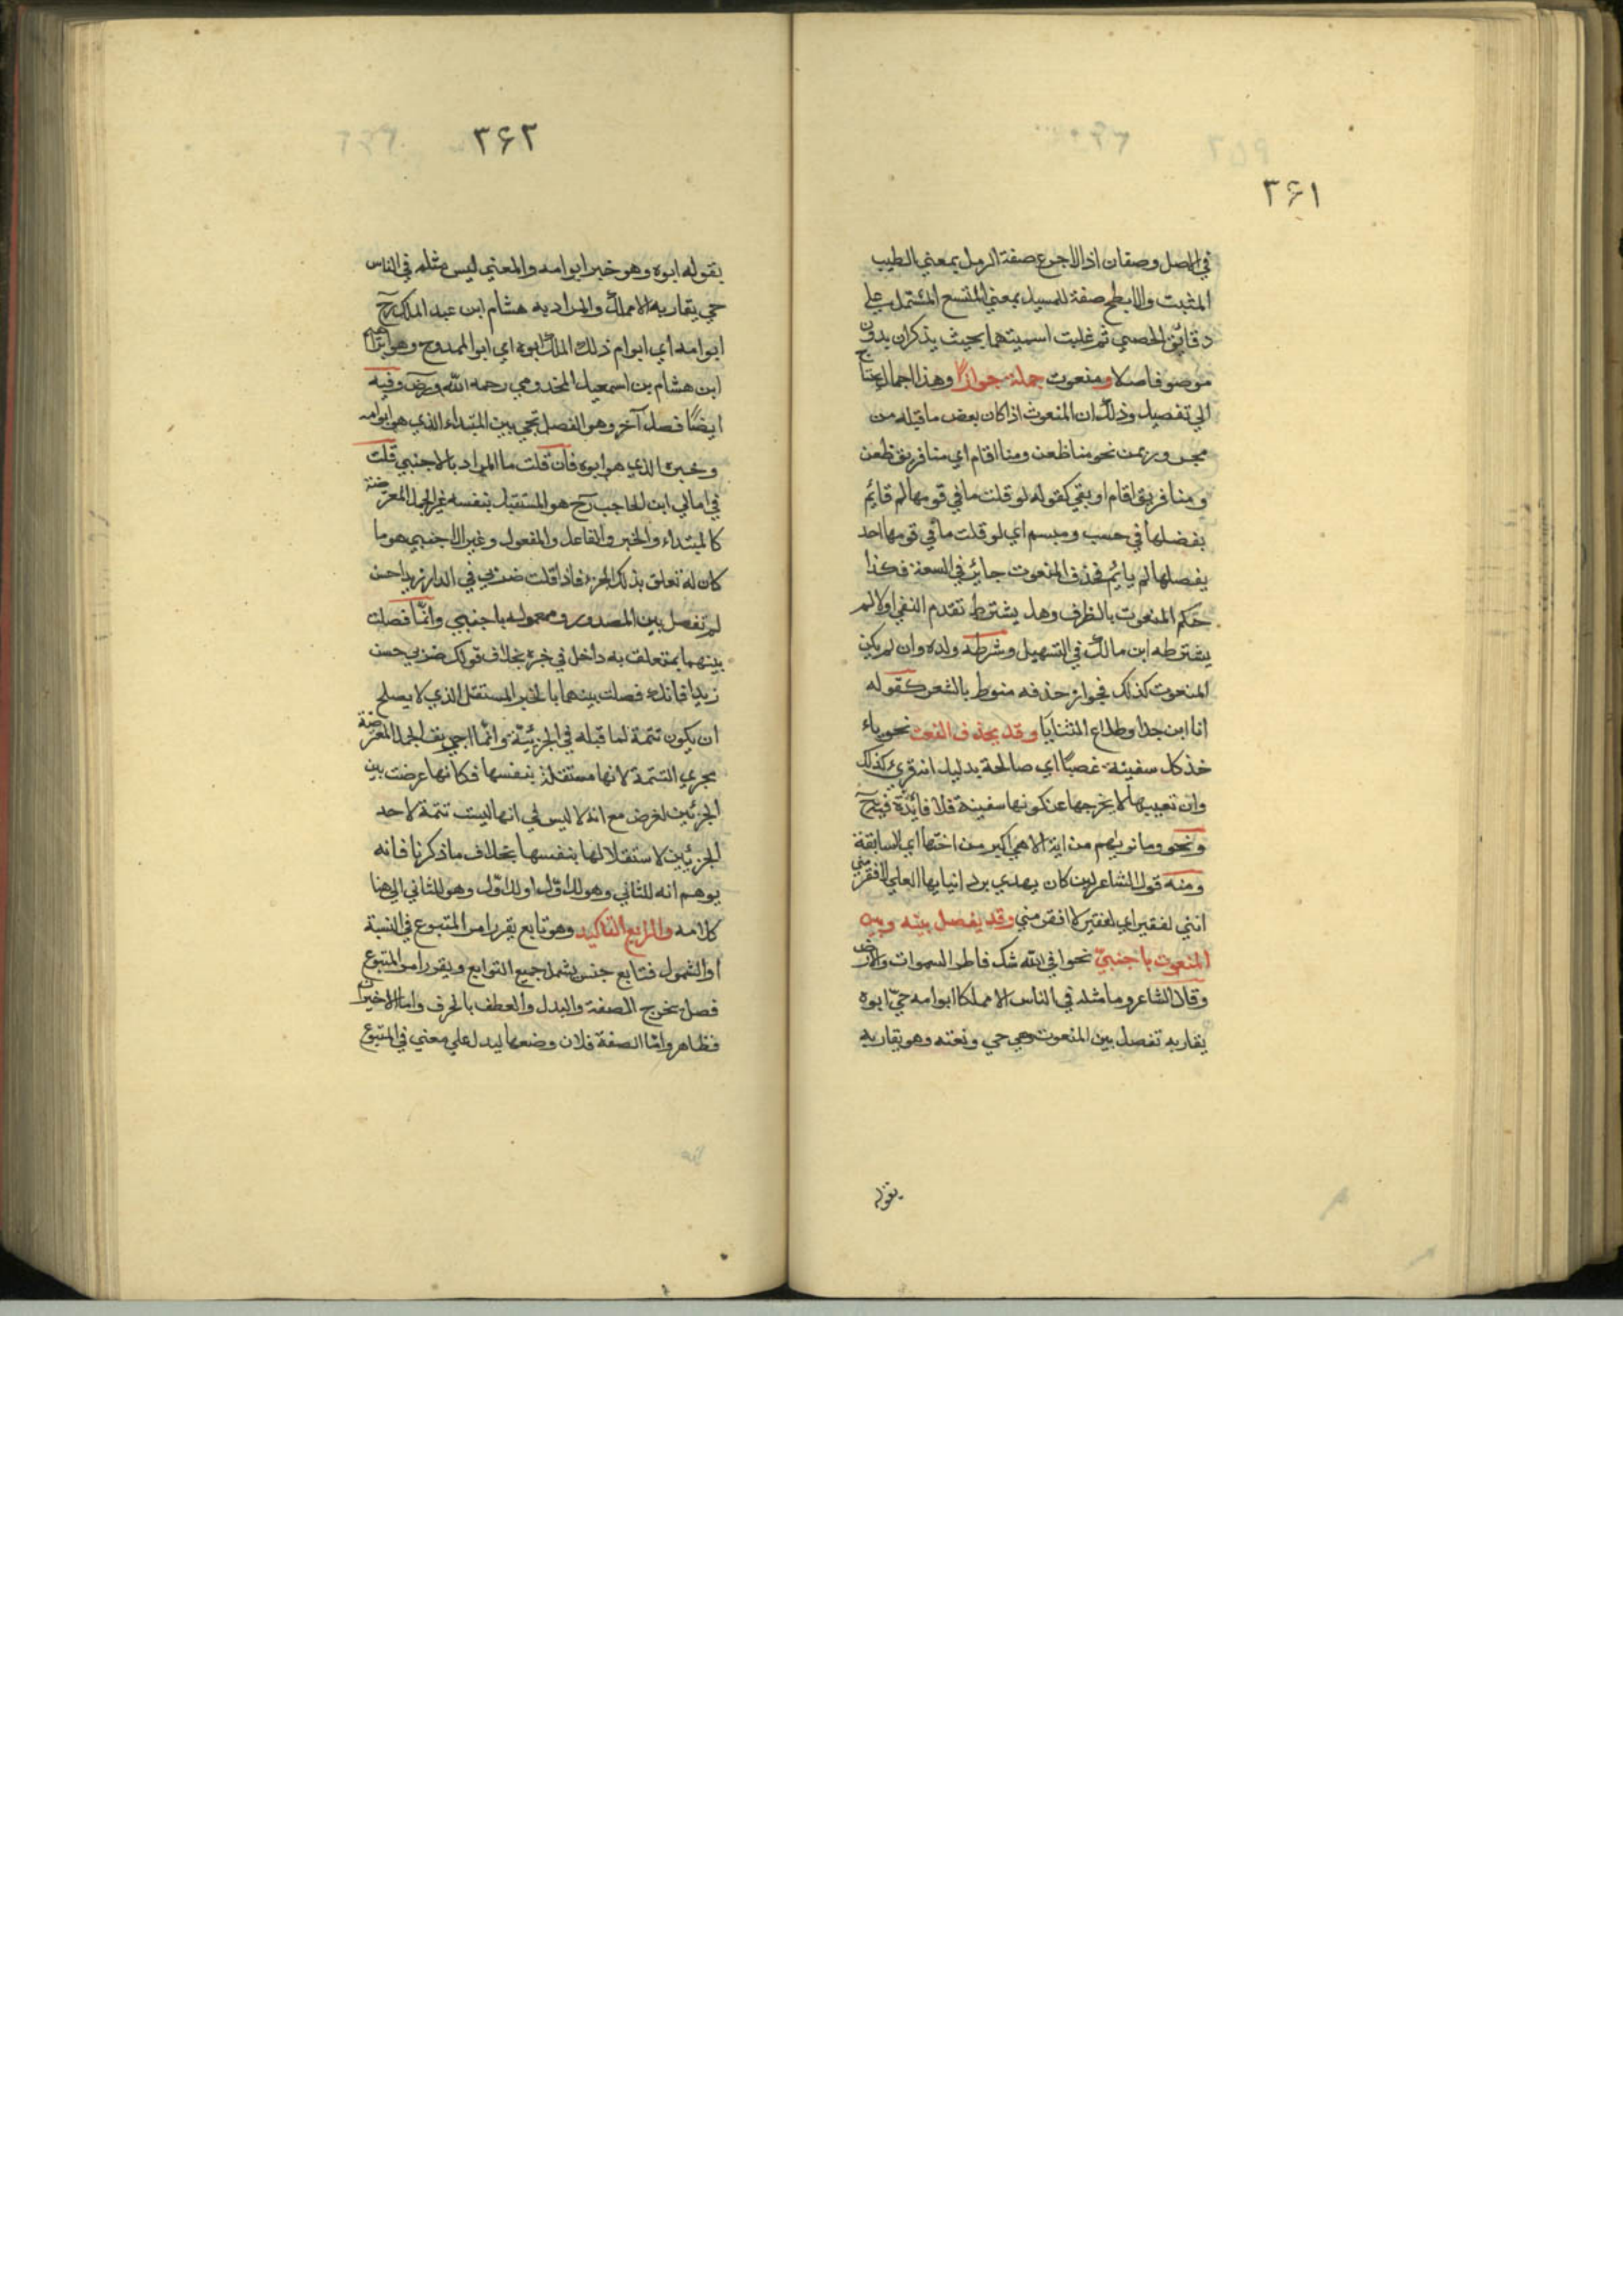 ٣۶١
في الاصل وصفان اذ الاجرع صفة الرمل بمعني الطيب
المثبت والابطح صفة للمسيل بمعني المتسع المشتمل علي
دقايق الحصي ثم غلبت اسميتهما بحيث يذكران بدون
موصوف اصلا ومنعوت جملة جوازا وهذا اجمال يحتاج
الي تفصيل وذلك ان المنعوت اذا كان بعض ما قبله من
مجرور بمن نحو منا ظعن ومنا اقام اي منا فريق ظعن
ومنا فريق اقام او بفي كقوله لو قلت ما في قومها لم قايم
بفضلها في حسب ومبسم اي لو قلت ما في قومها احد
يفضلها لم يايم فحذف المنعوت جايز في السعة فكذا
حكم المنعوت بالظرف وهل يشترط تقدم النفي اولا لم
يشترطه ابن مالك في التسهيل وشرطه ولده وان لم يكن
المنعوت كذلك فجواز حذفه منوط بالشعر كقوله
انا ابن جلا وطلاع الثنايا وقد يحذف النعت نحو ياء
خذ كل سفينة غصبًا اي صالحة بدليل انه قري كذلك
وان تعييبها لا يخرجها عن كونها سفينة فلا فائدة فيه ح
ونحو وما نريهم من اية الا هي اكبر من اختها اي السابقة
ومنه قول الشاعر لمن كان يهدي برد انيابها العلي لافقر مني
انني لفقير اي لفقير لا افقر مني وقد يفصل بينه وبين
المنعوت باجنبيّ نحو افي الله شك فاطر السموات والارض
وقال الشاعر وما مثله في الناس الا مملكا ابو امه حيّ ابوه
يقاربه تفصل بين المنعوت وهي حي ونعته وهو يقاربه
بقوله
٣۶٢
بقوله ابوه وهو خبر ابو امه والمعني ليس مثله في الناس
حي يقاربه الا مملك والمراد به هشام ابن عبد الملك رح
ابو امه اي ابو ام ذلك الملك ابوه اي ابو الممدوح وهو ابراهيم
ابن هشام بن اسمعيل المخدومي رحمه الله ورض وفيه
ايضًا فصل آخر وهو الفصل بحي بين المبتداء الذي هو ابو امه
وخبره الذي هو ابوه فان قلت ما المراد بالاجنبي قلت
في امالي ابن الحاجب رح هو المستقبل بنفسه غير الجمل المعترضة
كالمبتداء والخبر والفاعل والمفعول وغير الاجنبي هو ما
كان له تعلق بذلك الجزء فاذا قلت ضربي في الدار زيدا حسن
لم تفصل بين المصدر ومعموله باجنبي وانما فصلت
بينهما بمتعلق به داخل في خبره بخلاف قولك ضربي حسن
زيدا فانك فصلت بينهما بالخبر المستقل الذي لا يصلح
ان يكون تتمة لما قبله في الجزئية وانما اجريت الجمل المعترضة
مجري التتمة لانها مستقلة بنفسها فكانها عرضت بين
الجزئين لغرض مع انه لا لبس في انها ليست تتمة لاحد
الجزئين لاستقلالها بنفسها بخلاف ما ذكرنا فانه
يوهم انه للثاني وهو للاول او للاول وهو للثاني الي هنا
كلامه والرابع التاكيد وهو تابع يقرر امر المتبوع في النسبة
او الشمول فتابع جنس يشمل جميع التوابع ويقرر امر المتبوع
فصل يخرج الصفة والبدل والعطف بالحرف واما الاخيران
فظاهر وامّا الصفة فلان وضعها ليدل علي معني في المتبوع